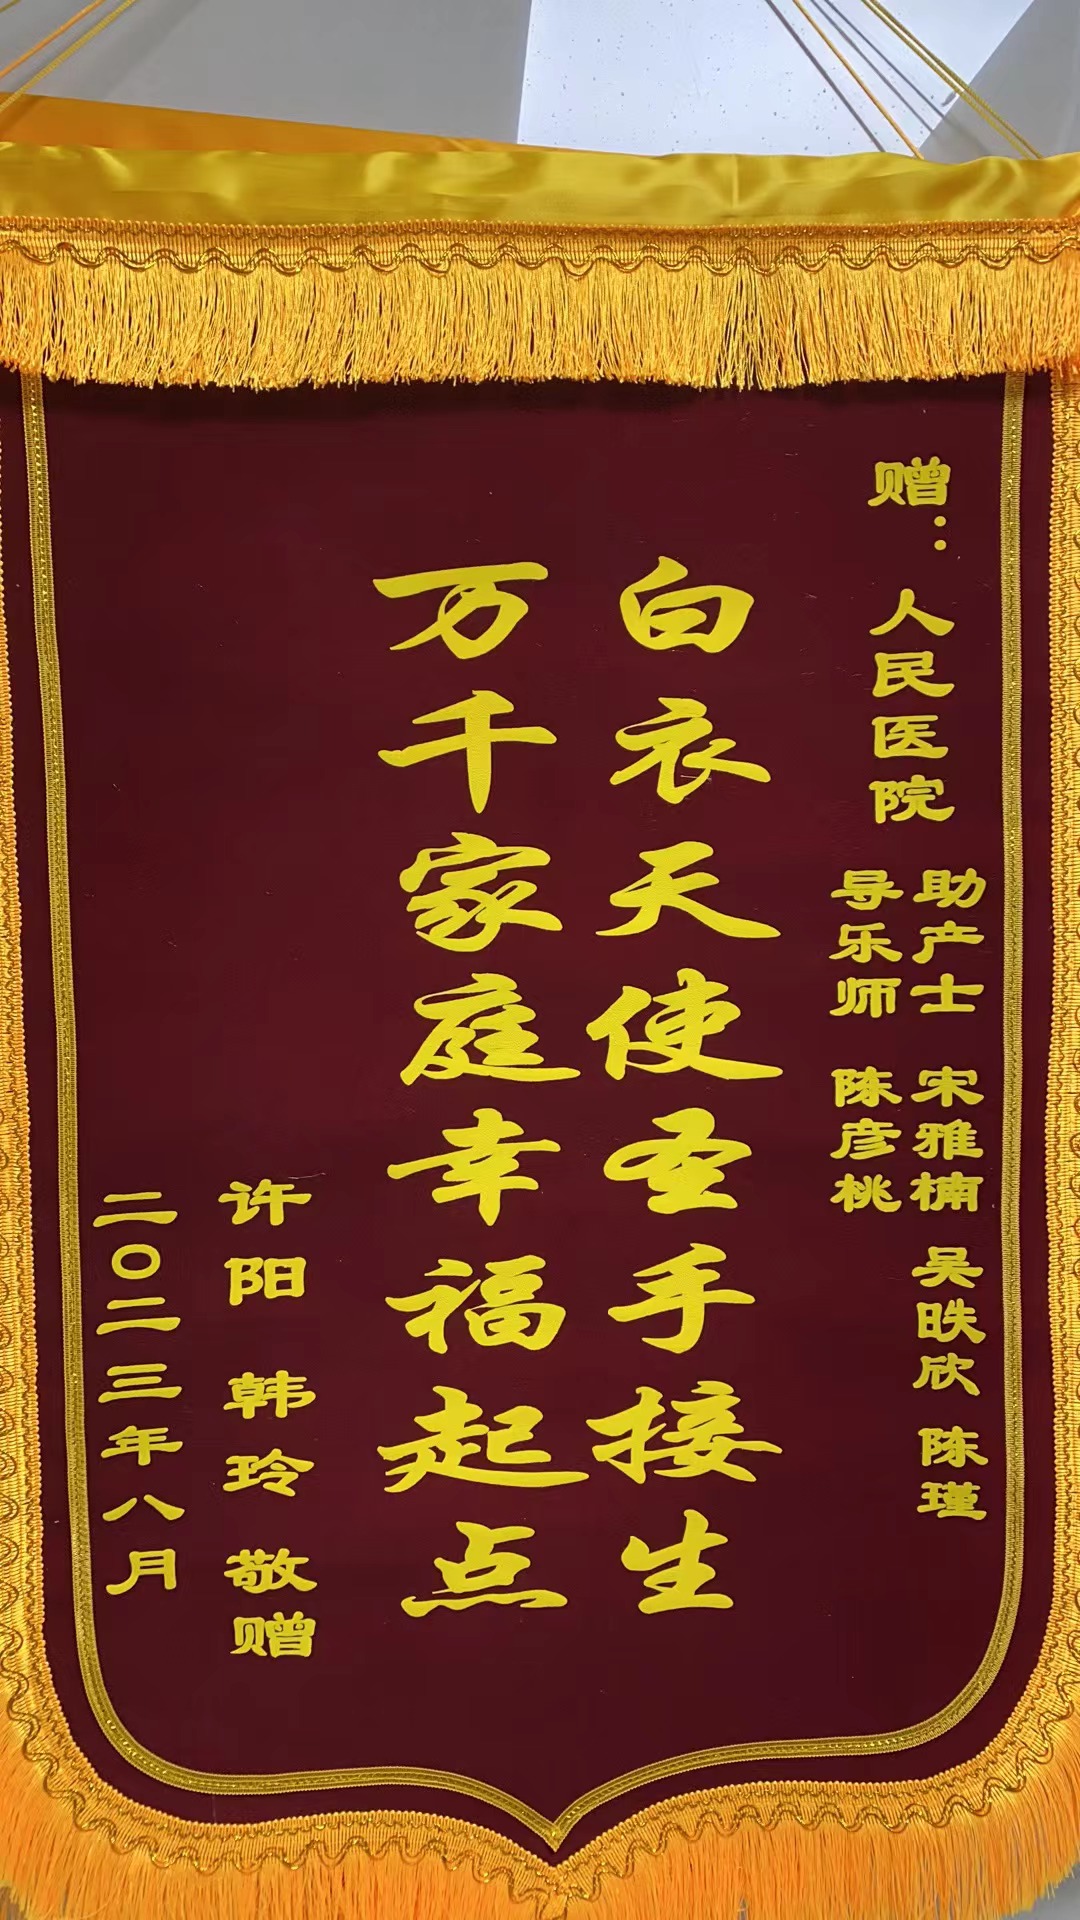 赠：人民医院
助产士 宋雅楠 吴昳欣 陈瑾
导乐师 陈彦桃
白衣天使圣手接生
万千家庭幸福起点
许阳 韩玲 敬赠
二〇二三年八月